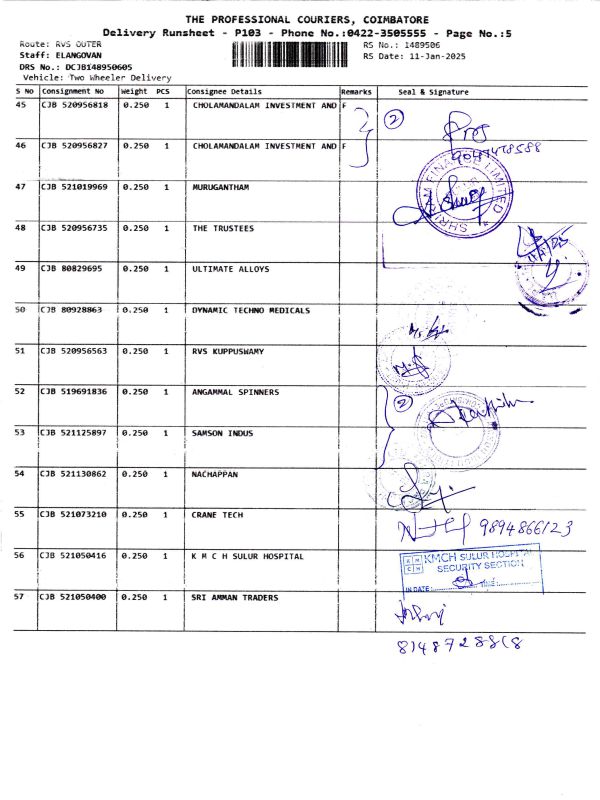 THE PROFESSIONAL COURIERS, COIMBATORE
Delivery Runsheet - P103 - Phone No.:0422-3505555 - Page No.:5
Route: RVS OUTER RS No.: 1489506
Staff: ELANGOVAN RS Date: 11-Jan-2025
DRS No.: DCJB148950605
Vehicle: Two Wheeler Delivery
S No Consignment No Weight PCS Consignee Details Remarks Seal & Signature
45 CJB 520956818 0.250 1 CHOLAMANDALAM INVESTMENT AND F
2
46 CJB 520956827 0.250 1 CHOLAMANDALAM INVESTMENT AND F
47 CJB 521019969 0.250 1 MURUGANTHAM
48 CJB 520956735 0.250 1 THE TRUSTEES
49 CJB 80829695 0.250 1 ULTIMATE ALLOYS
50 CJB 80928863 0.250 1 DYNAMIC TECHNO MEDICALS
51 CJB 520956563 0.250 1 RVS KUPPUSWAMY
52 CJB 519691836 0.250 1 ANGAMMAL SPINNERS
2
53 CJB 521125897 0.250 1 SAMSON INDUS
54 CJB 521130862 0.250 1 NACHAPPAN
55 CJB 521073210 0.250 1 CRANE TECH
9894866123
56 CJB 521050416 0.250 1 K M C H SULUR HOSPITAL
KMCH SULUR HOSPITAL
SECURITY SECTION
IN DATE: TIME:
57 CJB 521050400 0.250 1 SRI AMMAN TRADERS